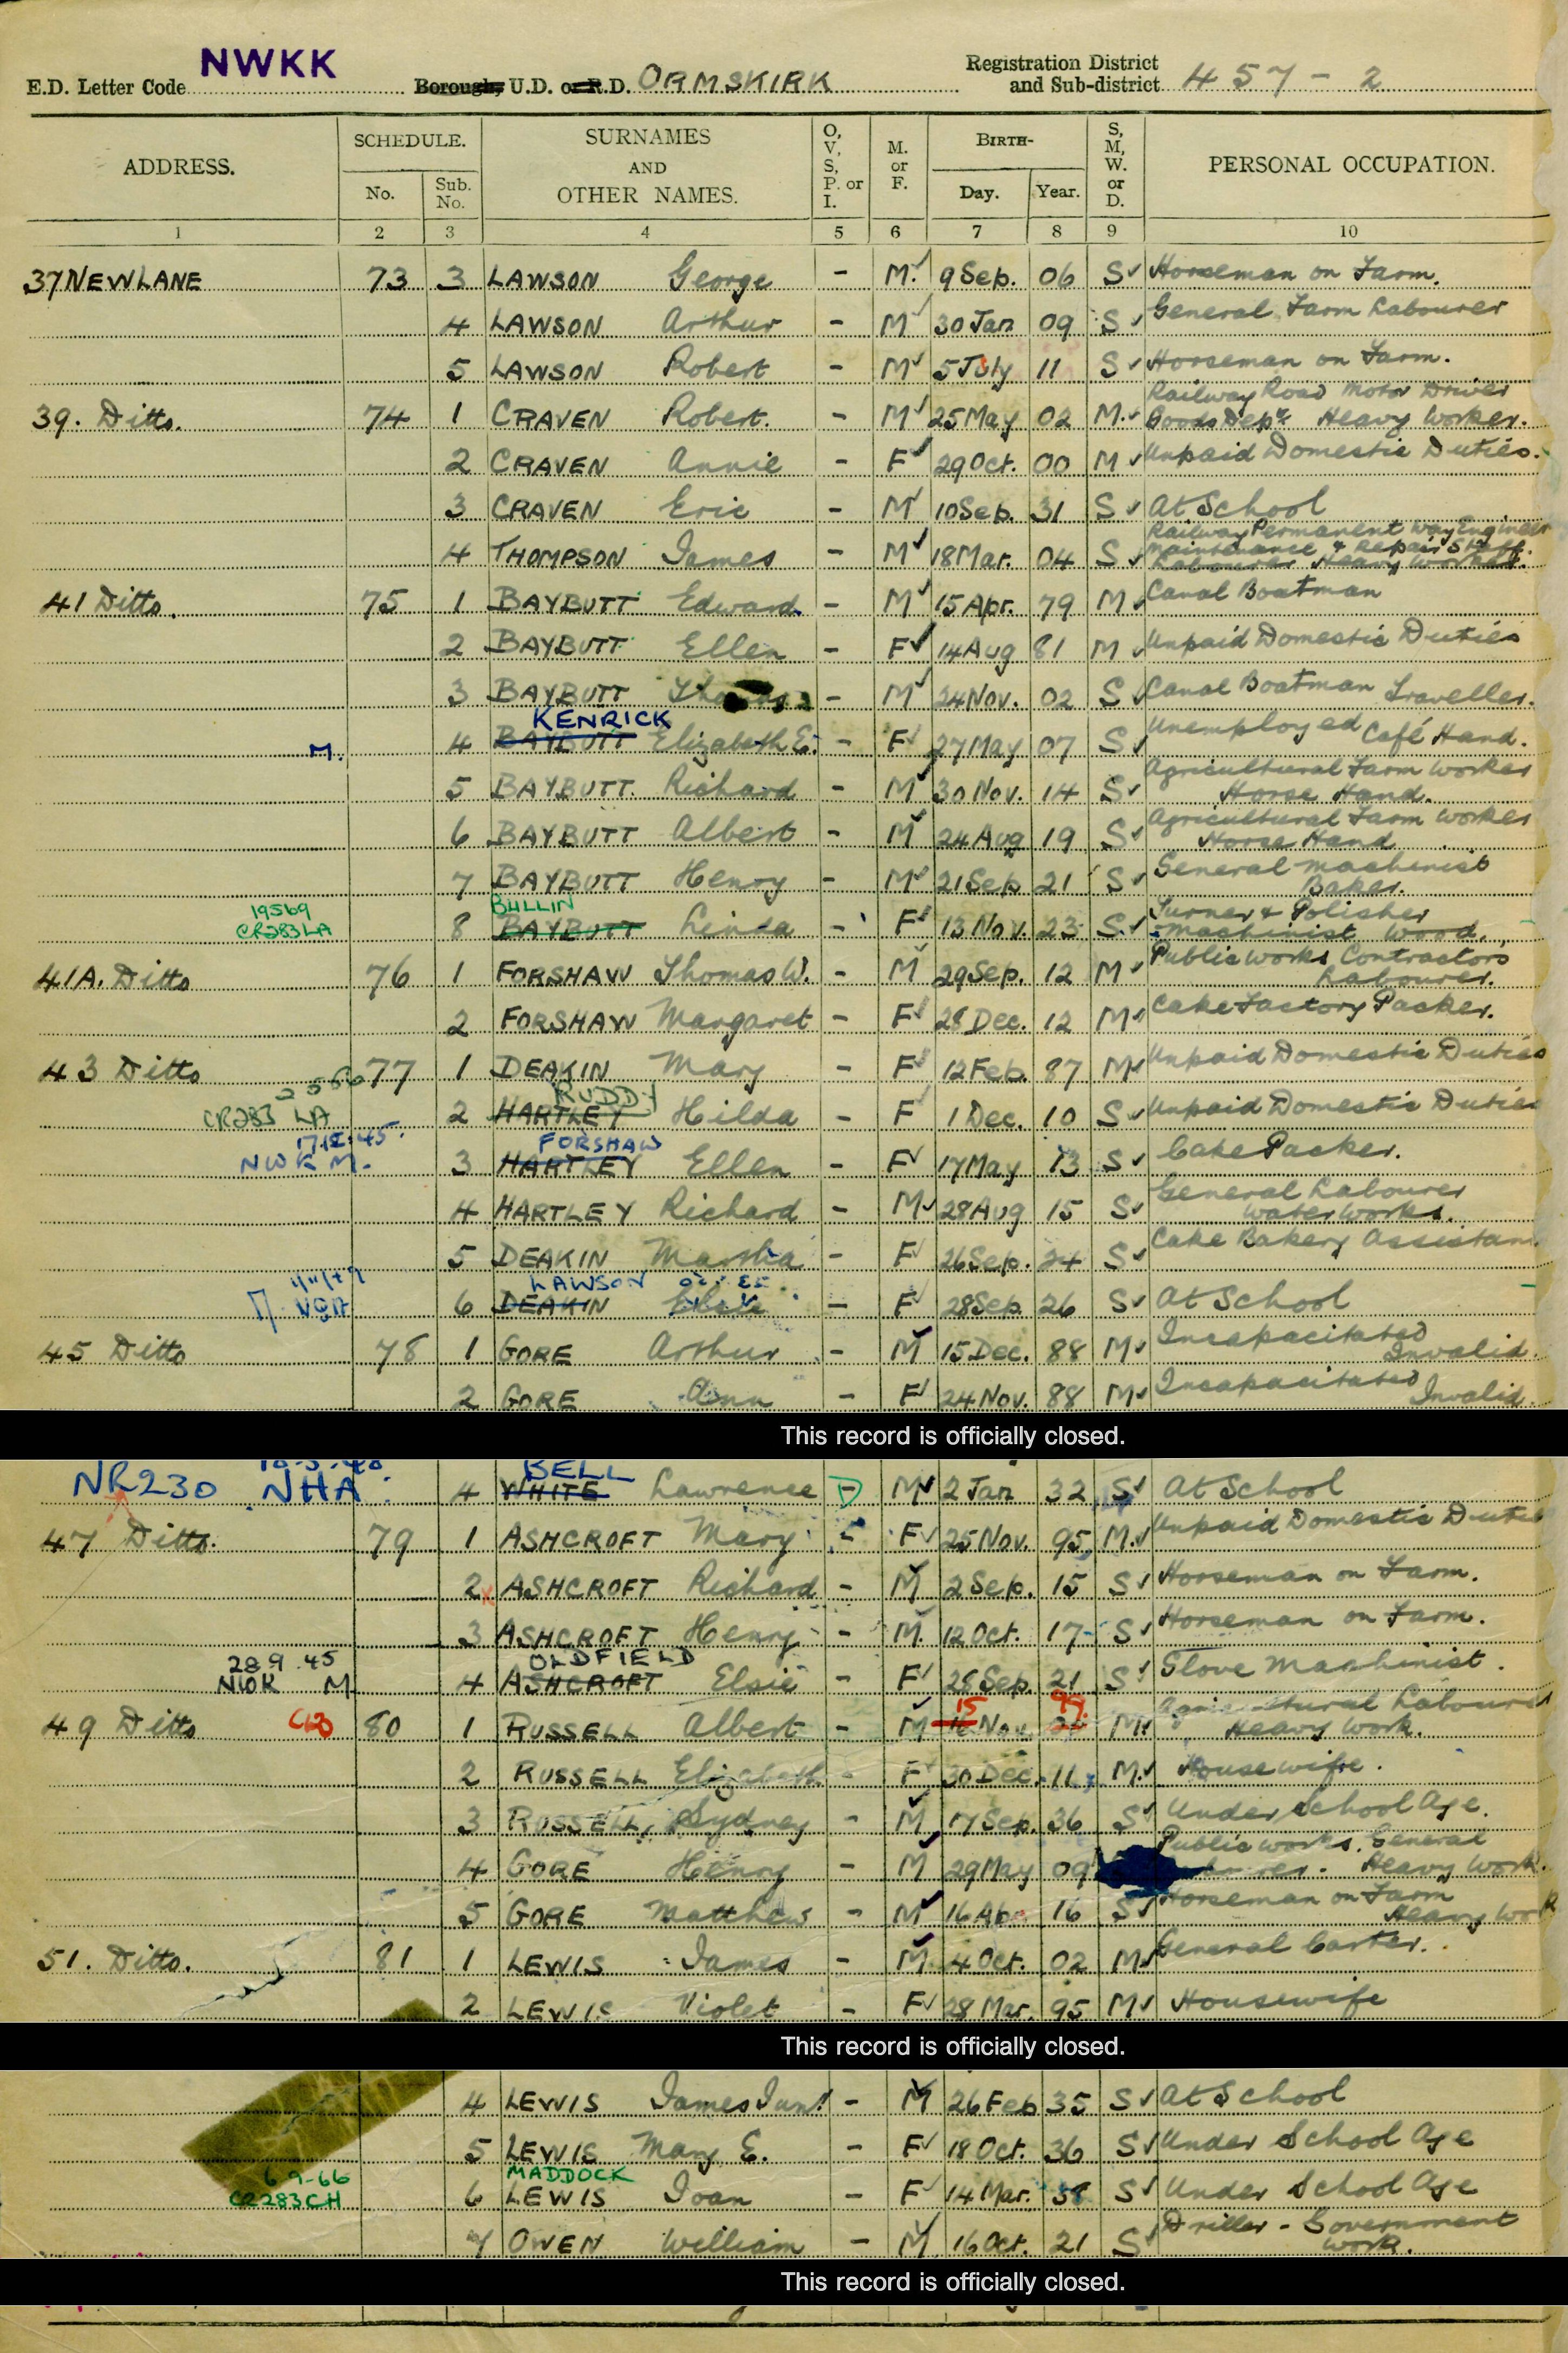 NWKK
E.D. Letter Code
Borough, U.D. or R.D. ORMSKIRK
Registration District and Sub-district 457 - 2
ADDRESS. SCHEDULE. No. Sub. No. SURNAMES AND OTHER NAMES. O, V, S, P. or I. M. or F. BIRTH- Day. Year. S, M, W. or D. PERSONAL OCCUPATION.
1 2 3 4 5 6 7 8 9 10
37 NEW LANE 73 3 LAWSON George - M. 9 Sep. 06 S Horseman on Farm.
4 LAWSON Arthur - M 30 Jan 09 S General Farm Labourer
5 LAWSON Robert - M 5 July 11 S Horseman on Farm.
Railway Road Motor Driver
39. Ditto. 74 1 CRAVEN Robert. - M 25 May 02 M. Goods Dept Heavy Worker.
2 CRAVEN Annie - F 29 Oct. 00 M Unpaid Domestic Duties.
3 CRAVEN Eric - M 10 Sep. 31 S At School
Railway Permanent Way Engineer
4 THOMPSON James - M 18 Mar. 04 S Maintenance & Repair Staff.
Labourer Heavy Worker.
41 Ditto. 75 1 BAYBUTT Edward - M 15 Apr. 79 M Canal Boatman
2 BAYBUTT Ellen - F 14 Aug 81 M Unpaid Domestic Duties
3 BAYBUTT Thomas - M 24 Nov. 02 S Canal Boatman Traveller.
KENRICK
M. 4 BAYBUTT Elizabeth E. - F 27 May 07 S Unemployed Café Hand.
Agricultural Farm Worker
5 BAYBUTT. Richard - M 30 Nov. 14 S Horse Hand.
Agricultural Farm Worker
6 BAYBUTT Albert - M 24 Aug 19 S Horse Hand
General Machinist
7 BAYBUTT Henry - M 21 Sep 21 S Baker.
19569 BULLIN Turner & Polisher
CR283 LA 8 BAYBUTT Linda - F 13 Nov. 23 S. Machinist Wood.
Public Works Contractors
41A. Ditto 76 1 FORSHAW Thomas W. - M 29 Sep. 12 M Labourer.
2 FORSHAW Margaret - F 28 Dec. 12 M Cake Factory Packer.
43 Ditto 77 1 DEAKIN Mary - F 12 Feb. 87 M Unpaid Domestic Duties
RUDDY
CR283 LA 2 HARTLEY Hilda - F 1 Dec. 10 S Unpaid Domestic Duties
FORSHAW
NWK M. 3 HARTLEY Ellen - F 17 May 13 S Cake Packer.
General Labourer
4 HARTLEY Richard - M 28 Aug 15 S Water Works.
5 DEAKIN Martha - F 26 Sep. 24 S Cake Bakery Assistan
LAWSON
6 DEAKIN - F 28 Sep. 26 S At School
45 Ditto 78 1 GORE Arthur - M 15 Dec. 88 M Incapacitated Invalid.
2 GORE Ann - F 24 Nov. 88 M Incapacitated Invalid.
This record is officially closed.
BELL
NR230 NHA. 4 WHITE Lawrence - M 2 Jan 32 S At School
47 Ditto. 79 1 ASHCROFT Mary - F 25 Nov. 95 M. Unpaid Domestic Duties
2 ASHCROFT Richard - M 2 Sep. 15 S Horseman on Farm.
3 ASHCROFT Henry - M. 12 Oct. 17 S Horseman on Farm.
28 9 45 OLDFIELD
NWK M 4 ASHCROFT Elsie - F 28 Sep. 21 S Glove Machinist.
15 99. Agricultural Labourer
49 Ditto 80 1 RUSSELL Albert - M Nov M Heavy Work.
2 RUSSELL Elizabeth - F 30 Dec. 11 M. Housewife.
3 RUSSELL, Sydney - M 17 Sep. 36 S Under School Age.
Public Works. General
4 GORE Henry - M 29 May 09 Heavy Work.
5 GORE Matthew - M 16 Apr 16 S Horseman on Farm Heavy Work
51. Ditto. 81 1 LEWIS James - M. 4 Oct. 02 M General Carter.
2 LEWIS Violet - F 28 Mar. 95 M Housewife
This record is officially closed.
4 LEWIS James Junr - M 26 Feb 35 S At School
5 LEWIS Mary E. - F 18 Oct. 36 S Under School Age
6-9-66 MADDOCK
CR283 CH 6 LEWIS Joan - F 14 Mar. 38 S Under School Age
Driller - Government
7 OWEN William - M 16 Oct. 21 S Work.
This record is officially closed.